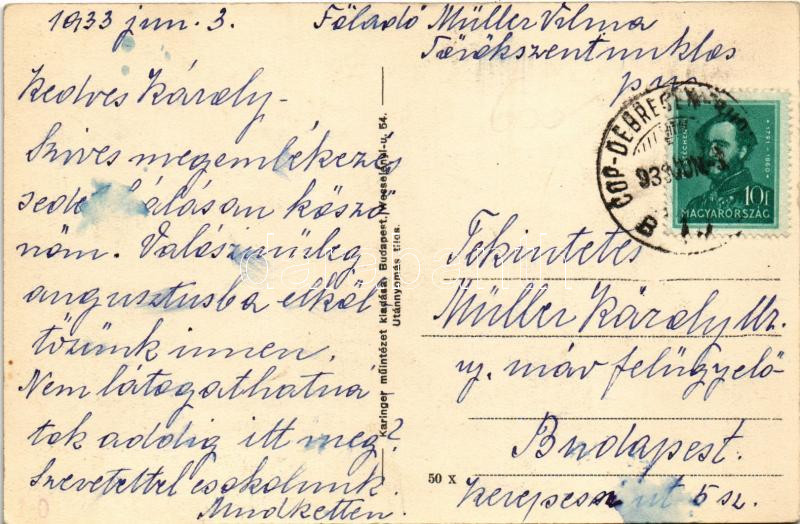 1933 jun. 3.
Föladó Müller Vilma
Törökszentmiklos
Kedves Károly-
Szives megemlékezés
sedet hálásan köszö
nöm. Valószinüleg
augusztusba elköl
tözünk innen.
Nem látogathatná
tok addig itt meg?
Szeretettel csokolunk
Mindketten.
Karinger műintézet kiadása, Budapest, Wesselényi-u. 54.
Utánnyomás tilos.
CÓP-DEBRECEN-BUDAPEST
933 JUN-3
B
SZÉCHENYI
1791-1860
10f
MAGYARORSZÁG
Tekintetes
Müller Károly Ur.
ny. máv felügyelő
Budapest.
Kerepesi út 5 sz.
50 x
darabanth.com